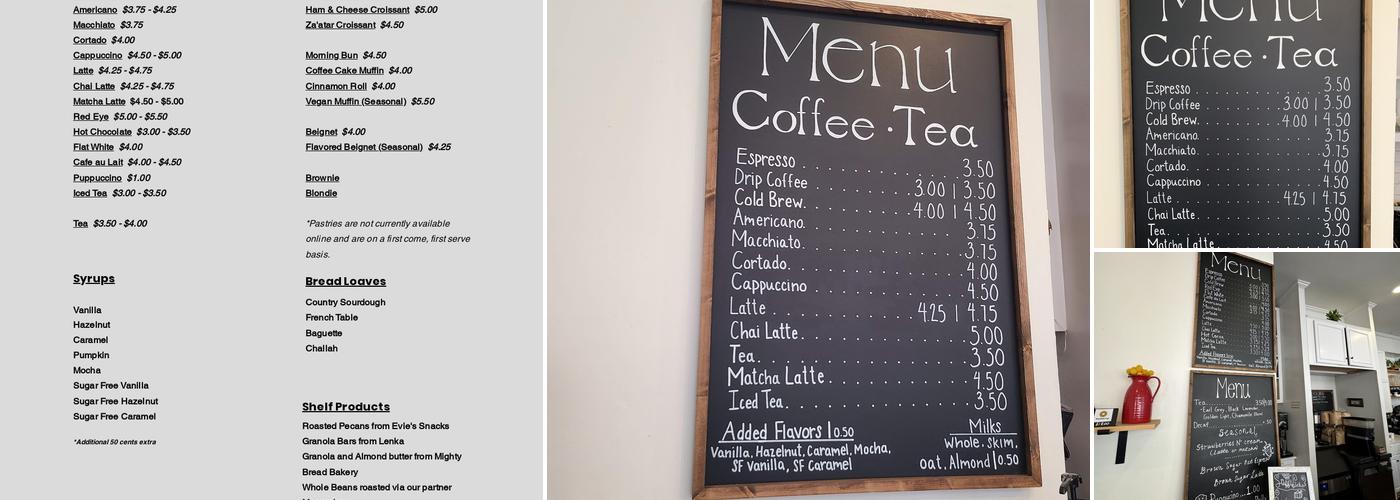 Americano $3.75 - $4.25
Macchiato $3.75
Cortado $4.00
Cappuccino $4.50 - $5.00
Latte $4.25 - $4.75
Chai Latte $4.25 - $4.75
Matcha Latte $4.50 - $5.00
Red Eye $5.00 - $5.50
Hot Chocolate $3.00 - $3.50
Flat White $4.00
Cafe au Lait $4.00 - $4.50
Puppuccino $1.00
Iced Tea $3.00 - $3.50
Tea $3.50 - $4.00
Syrups
Vanilla
Hazelnut
Caramel
Pumpkin
Mocha
Sugar Free Vanilla
Sugar Free Hazelnut
Sugar Free Caramel
*Additional 50 cents extra
Ham & Cheese Croissant $5.00
Za'atar Croissant $4.50
Morning Bun $4.50
Coffee Cake Muffin $4.00
Cinnamon Roll $4.00
Vegan Muffin (Seasonal) $5.50
Beignet $4.00
Flavored Beignet (Seasonal) $4.25
Brownie
Blondie
*Pastries are not currently available
online and are on a first come, first serve
basis.
Bread Loaves
Country Sourdough
French Table
Baguette
Challah
Shelf Products
Roasted Pecans from Evie's Snacks
Granola Bars from Lenka
Granola and Almond butter from Mighty
Bread Bakery
Whole Beans roasted via our partner
Menu
Coffee · Tea
Espresso 3.50
Drip Coffee 3.00 | 3.50
Cold Brew 4.00 | 4.50
Americano 3.75
Macchiato 3.75
Cortado 4.00
Cappuccino 4.50
Latte 4.25 | 4.75
Chai Latte 5.00
Tea 3.50
Matcha Latte 4.50
Iced Tea 3.50
Added Flavors | 0.50
Vanilla, Hazelnut, Caramel, Mocha,
SF Vanilla, SF Caramel
Milks
Whole, Skim,
Oat, Almond | 0.50
Menu
Coffee · Tea
Espresso 3.50
Drip Coffee 3.00 | 3.50
Cold Brew 4.00 | 4.50
Americano 3.75
Macchiato 3.75
Cortado 4.00
Cappuccino 4.50
Latte 4.25 | 4.75
Chai Latte 5.00
Tea 3.50
Matcha Latte 4.50
Menu
Espresso
Drip Coffee
Cold Brew
Added Flavors
Menu
Tea
Earl Grey, Black, Lavender,
Golden Light, Chamomile
Decaf .50
Seasonal
Strawberries N' cream
Brown Sugar
Brown Sugar Latte
1.00